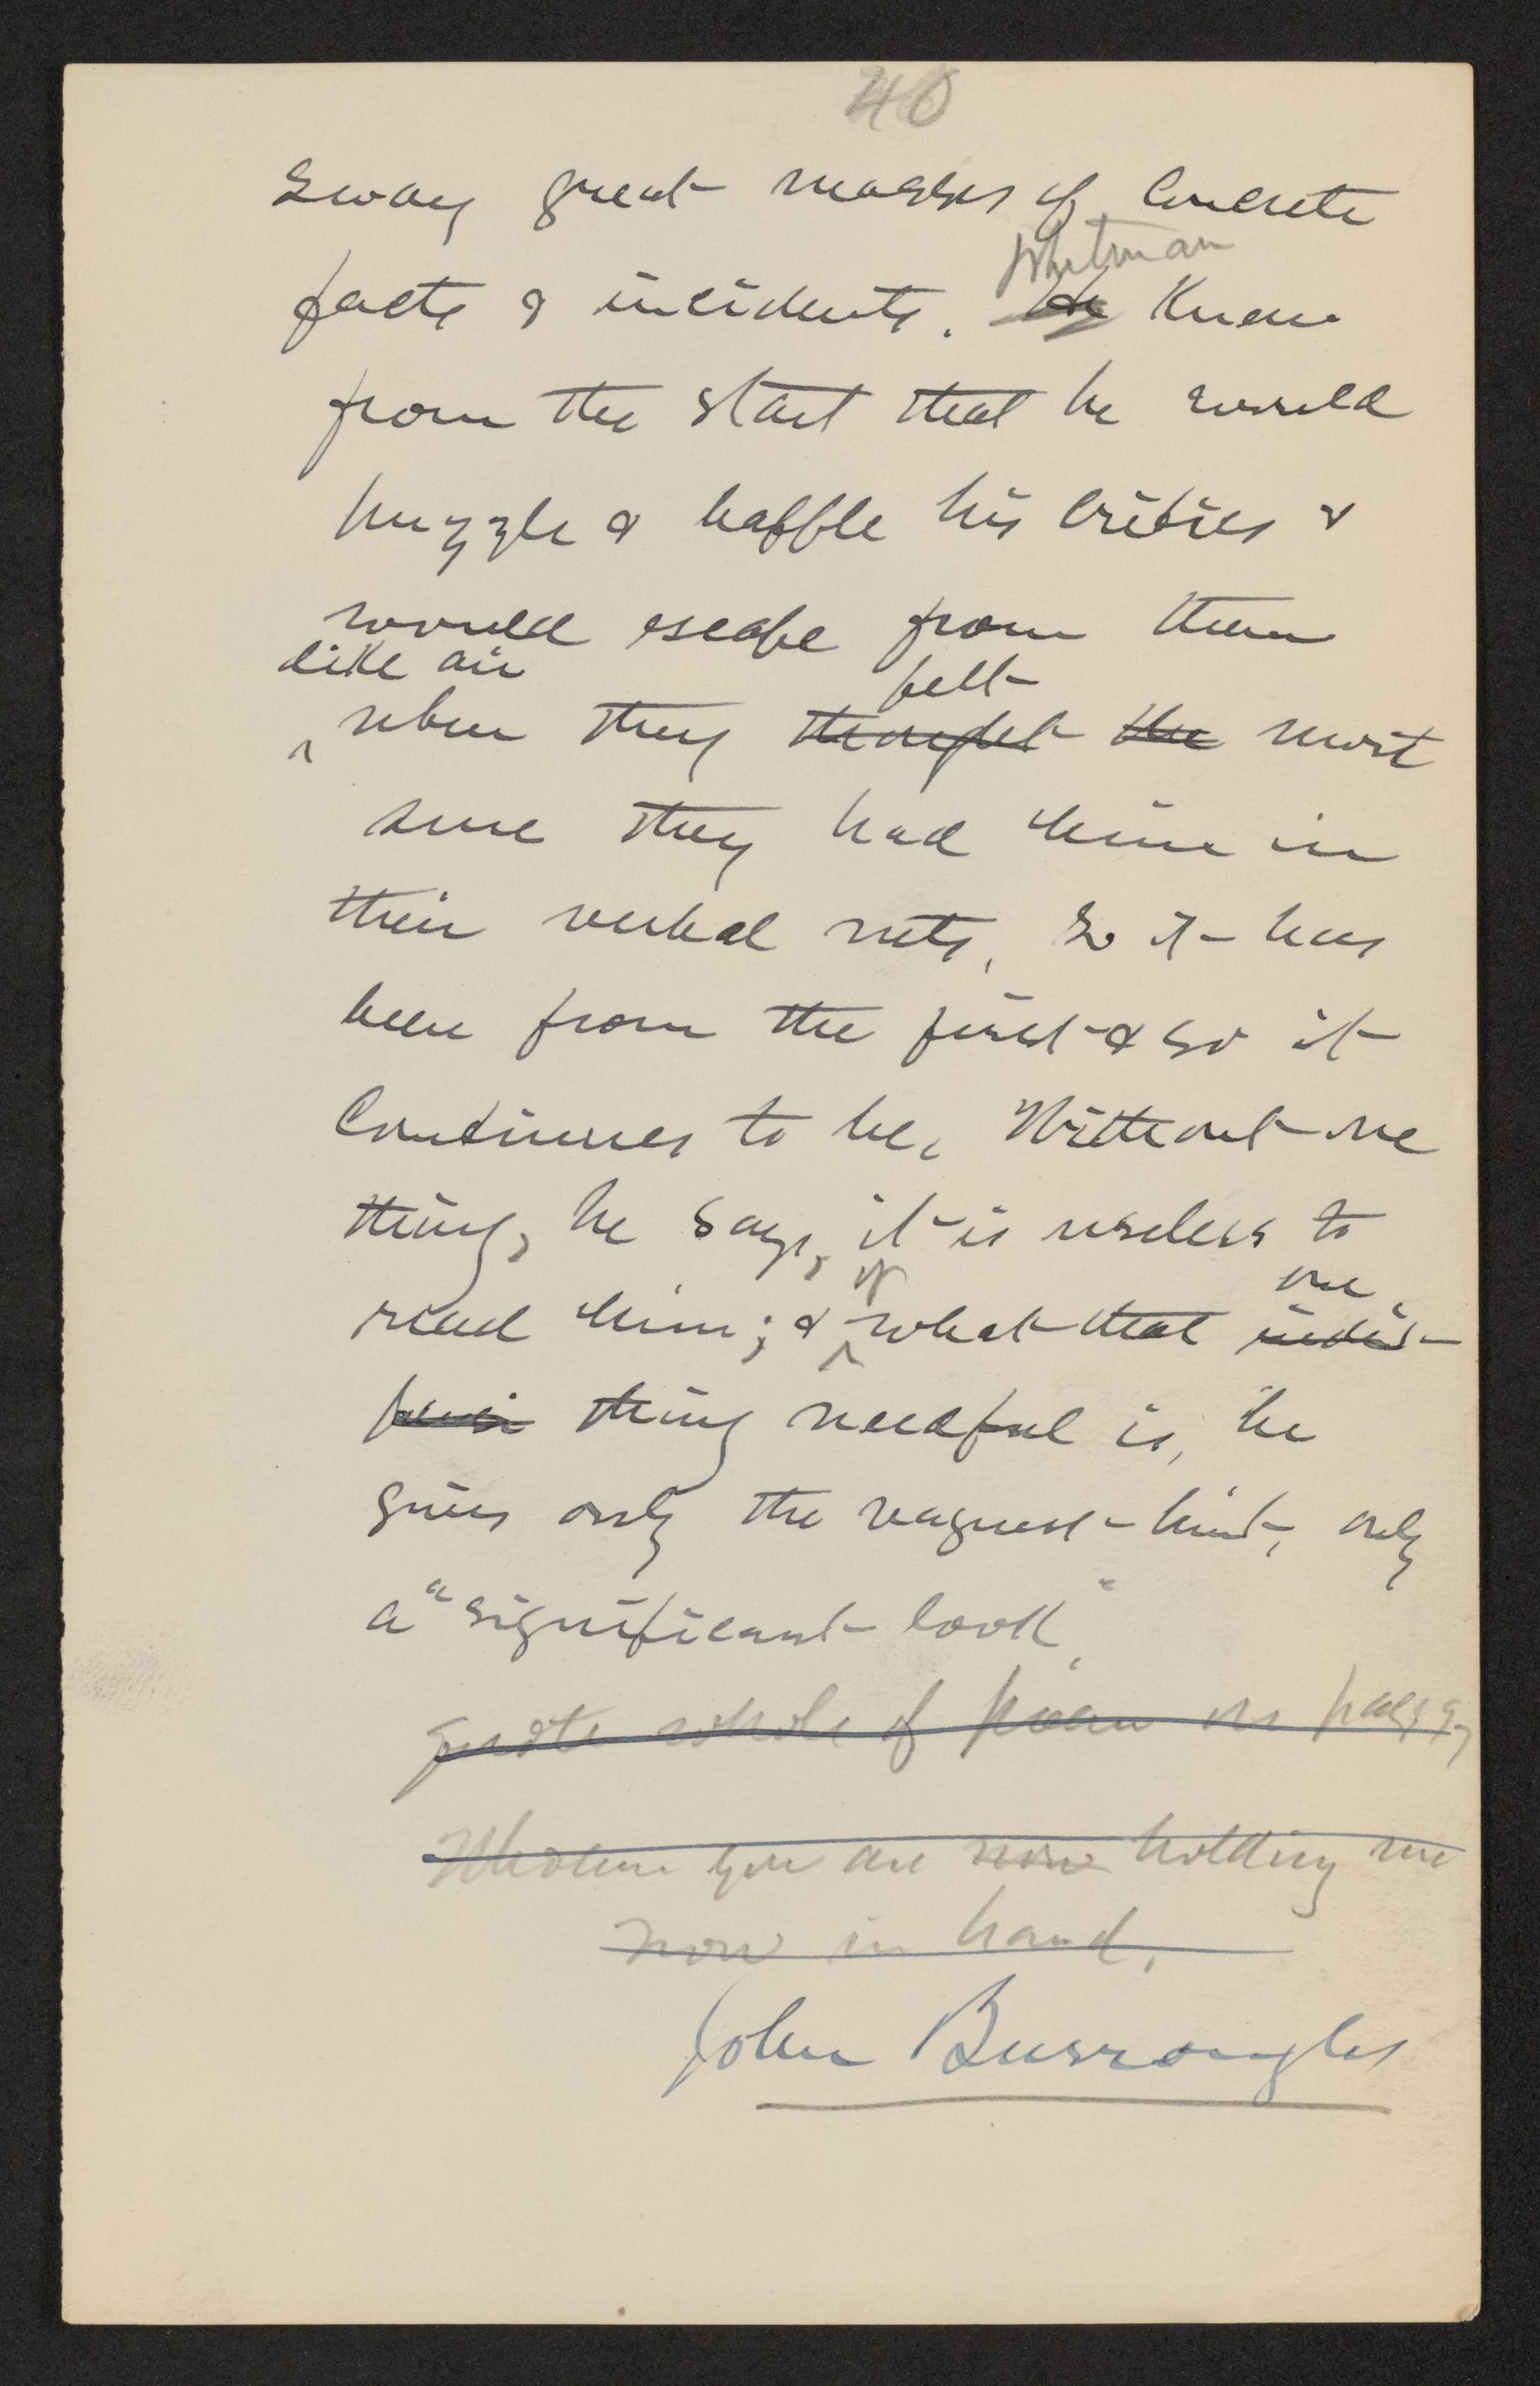 40
sway great masses of concrete
Whitman
facts & incidents. He knew
from the start that he would
puzzle & baffle his critics &
would escape from them
like air
felt
when they thought the most
sure they had him in
their verbal nets, So it has
been from the first & so it
continues to be. Without one
thing, he says, it is useless to
of one
read him; & what that indis-
pensi thing needful is, he
gives only the vaguest hint, only
a "significant look."
quote whole of poem on page
Whoever you are now holding me
now in hand.
John Burroughs